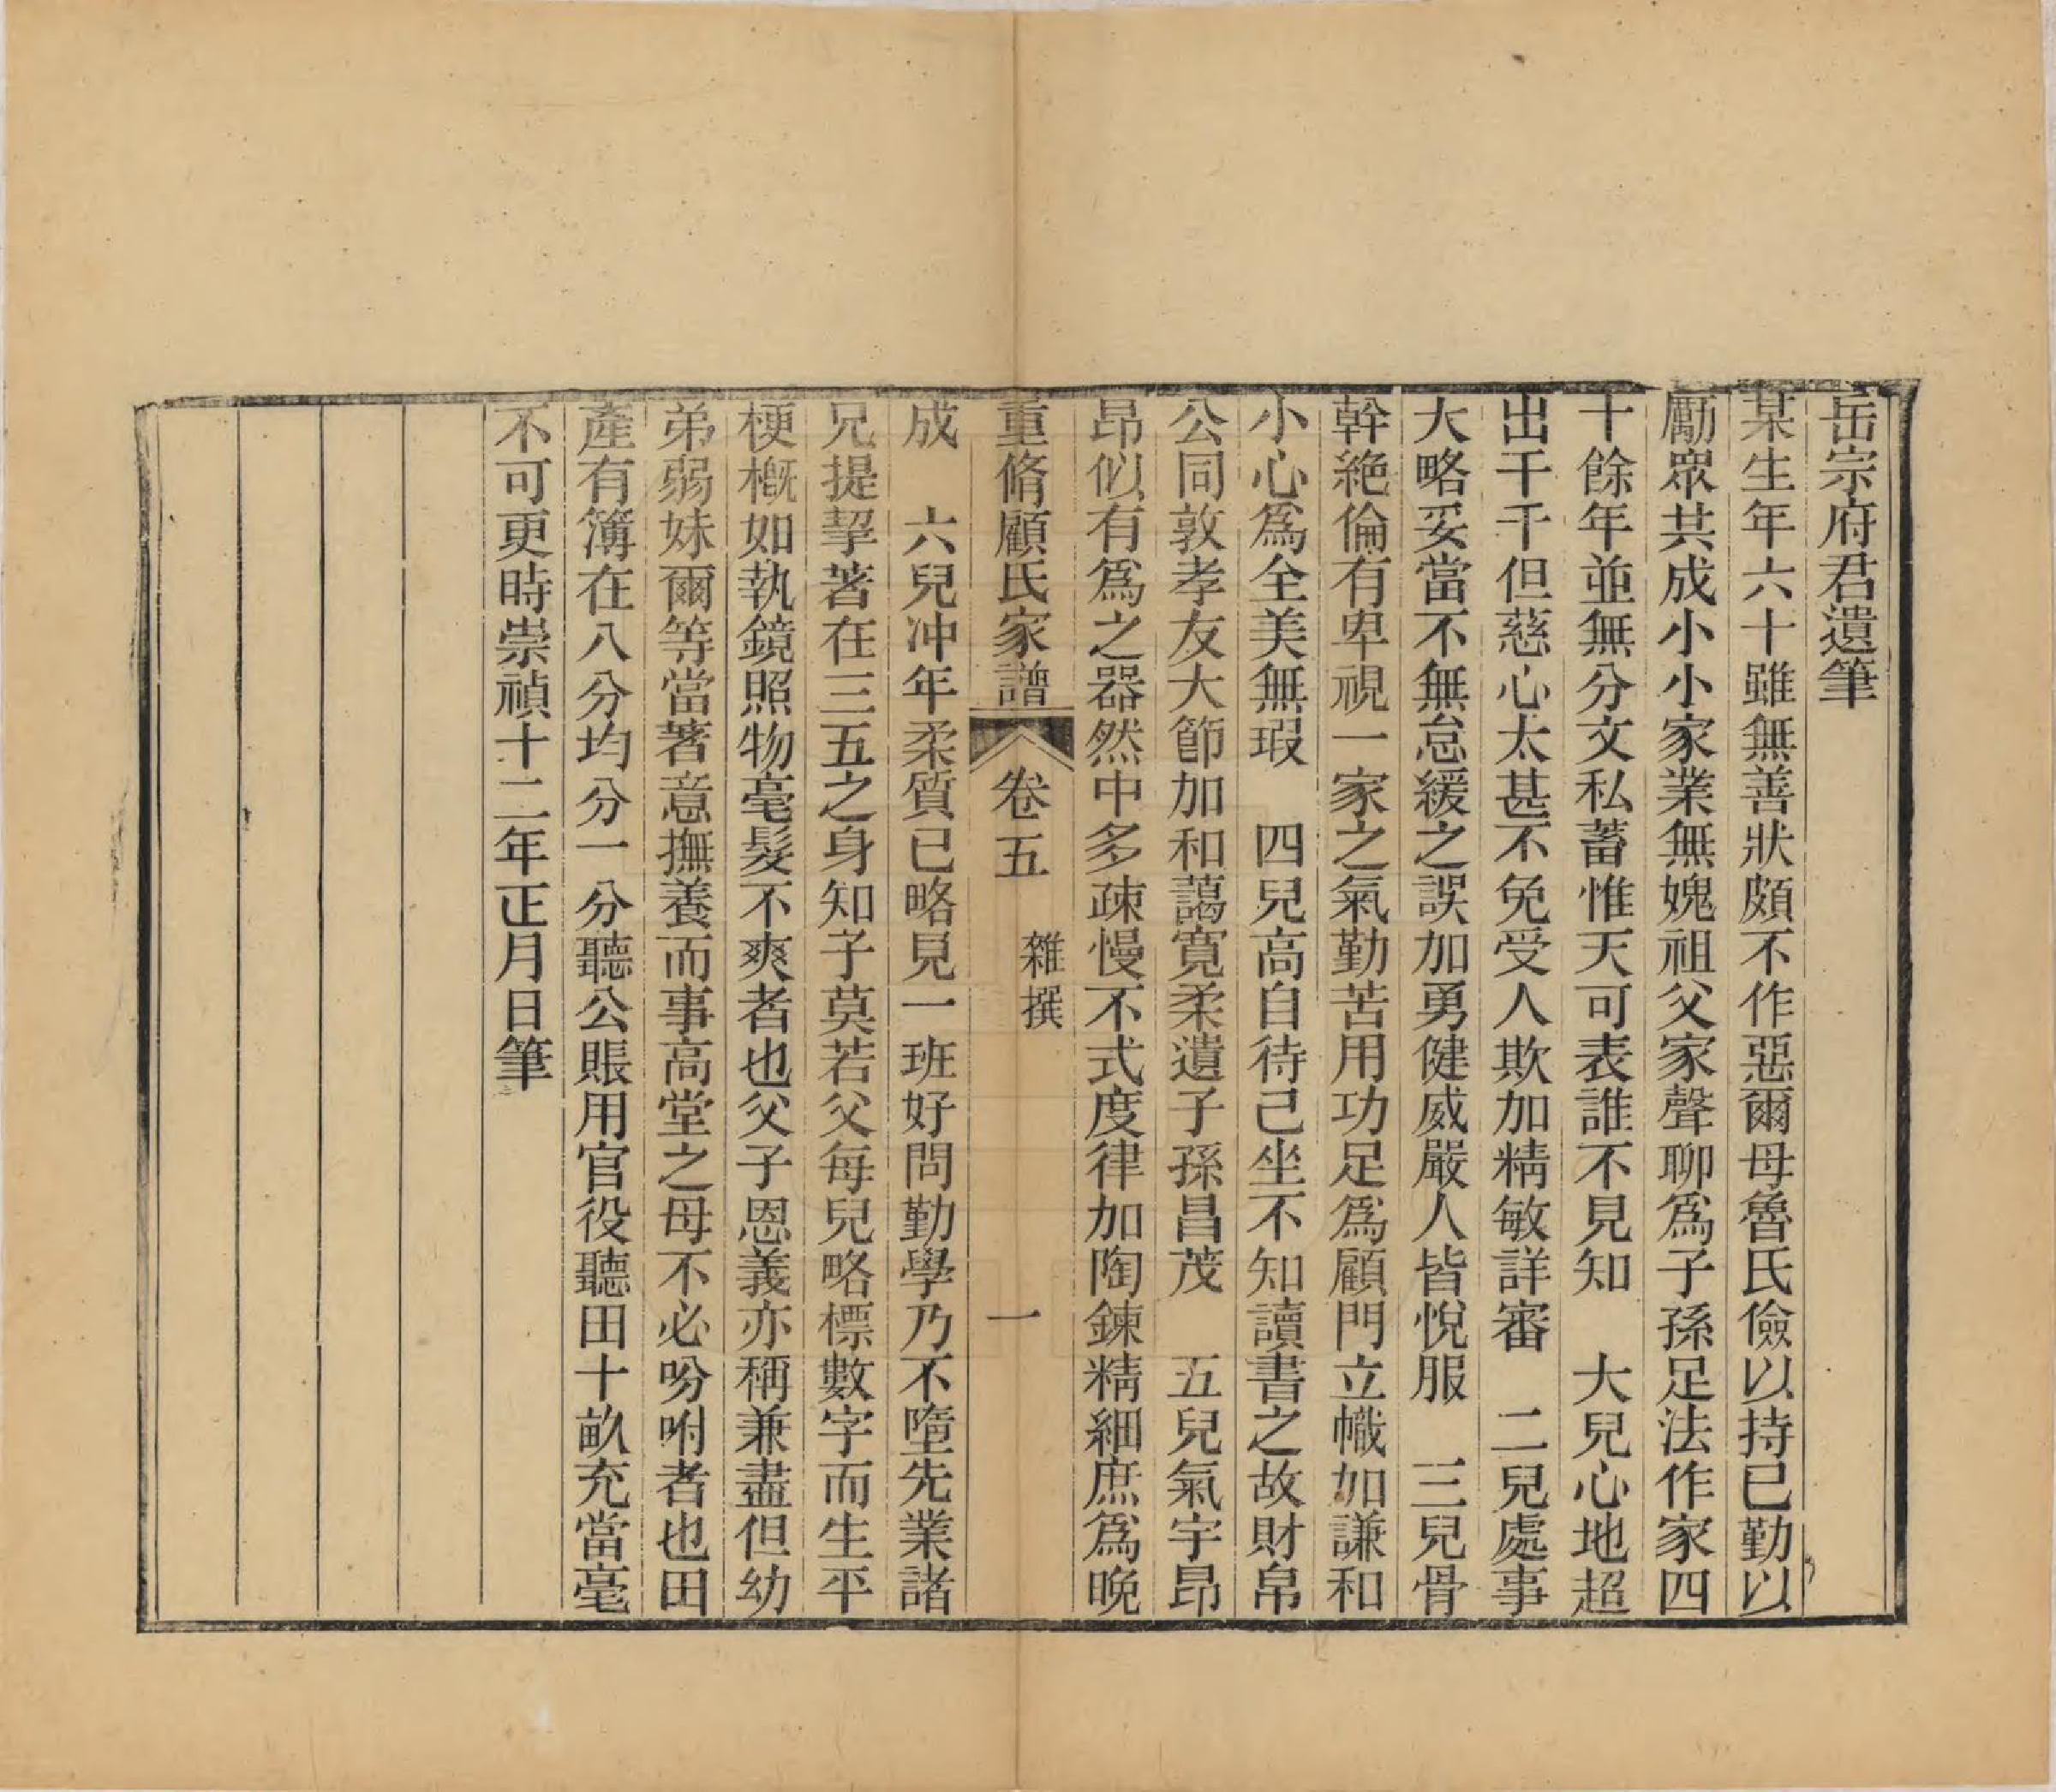 岳宗府君遺筆
某生年六十雖無善狀頗不作惡爾母魯氏儉以持已勤以
勵眾共成小小家業無媿祖父家聲聊爲子孫足法作家四
十餘年並無分文私蓄惟天可表誰不見知　大兒心地超
出千千但慈心太甚不免受人欺加精敏詳審　二兒處事
大略妥當不無怠緩之誤加勇健威嚴人皆悅服　三兒骨
幹絶倫有卑視一家之氣勤苦用功足爲顧門立幟加謙和
小心爲全美無瑕　四兒高自待己坐不知讀書之故財帛
公同敦孝友大節加和藹寬柔遺子孫昌茂　五兒氣宇昂
昂似有爲之器然中多疎慢不式度律加陶鍊精細庶爲晚
重脩顧氏家譜　卷五　雜撰　一
成　六兒冲年柔質已略見一班好問勤學乃不墮先業諸
兄提挈著在三五之身知子莫若父每兒略標數字而生平
梗概如執鏡照物毫髮不爽者也父子恩義亦稱兼盡但幼
弟弱妹爾等當著意撫養而事高堂之母不必吩咐者也田
產有簿在八分均分一分聽公賬用官役聽田十畝充當毫
不可更時崇禎十二年正月日筆